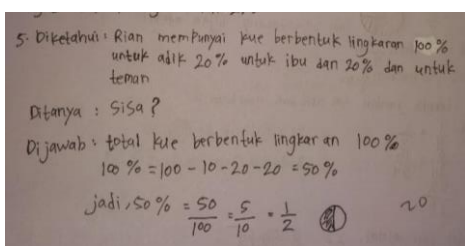 5. Diketahui : Rian mempunyai kue berbentuk lingkaran 100%
untuk adik 20% untuk ibu dan 20% dan untuk
teman
Ditanya : Sisa ?
Dijawab : total kue berbentuk lingkaran 100%
100 % = 100 - 10 - 20 - 20 = 50 %
jadi, 50 % = 50/100 = 5/10 = 1/2
20